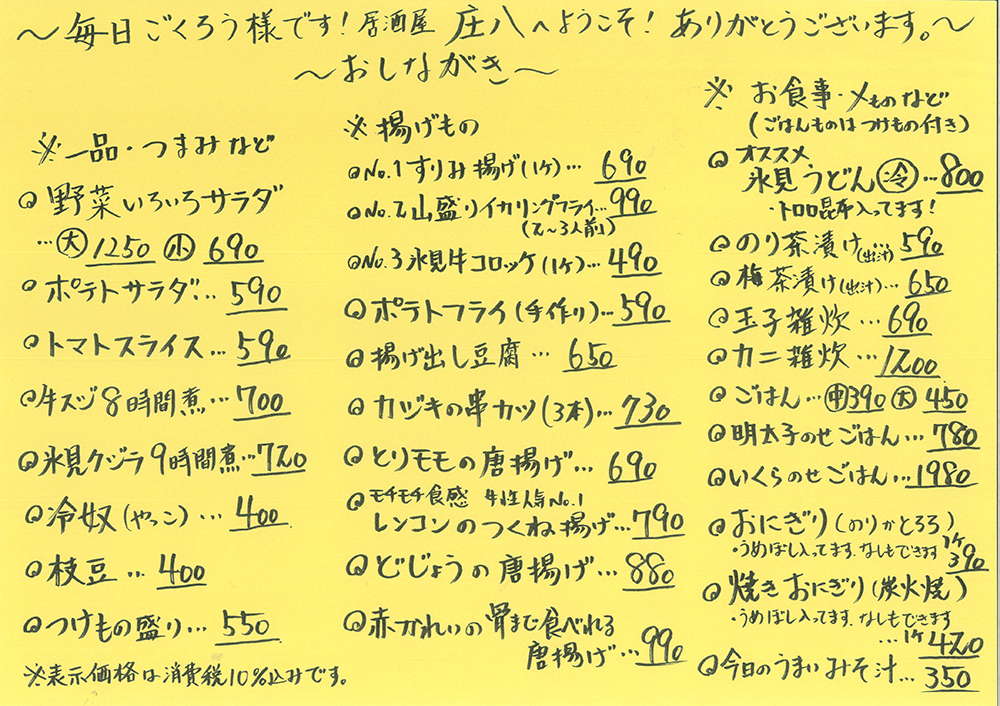 ～毎日ごくろう様です！居酒屋 庄八へようこそ！ありがとうございます。～
～おしながき～
※一品・つまみなど
○野菜いろいろサラダ
…㊅1250 ㊙690
○ポテトサラダ…590
○トマトスライス…590
○牛スジ8時間煮…700
○氷見クジラ9時間煮…720
○冷奴(やっこ)…400
○枝豆…400
○つけもの盛り…550
※表示価格は消費税10%込みです。
※揚げもの
○No.1すりみ揚げ(1ケ)…690
○No.2山盛りイカリングフライ…990
(2～3人前)
○No.3氷見牛コロッケ(1ケ)…490
○ポテトフライ(手作り)…590
○揚げ出し豆腐…650
○カヅキの串カツ(3本)…730
○とりモモの唐揚げ…690
モチモチ食感 女性人気No.1
○レンコンのつくね揚げ…790
○どじょうの唐揚げ…880
○赤がれいの骨まで食べれる
唐揚げ…990
※お食事・〆ものなど
(ごはんものはつけもの付き)
オススメ
○氷見うどん(冷)…800
・トロロ昆布入ってます！
○のり茶漬け(出汁)…590
○梅茶漬け(出汁)…650
○玉子雑炊…690
○カニ雑炊…1200
○ごはん…(中)390 (大)450
○明太子のせごはん…780
○いくらのせごはん…1980
○おにぎり(のりかとろろ)
・うめぼし入ってます。なしもできます 1ケ390
○焼きおにぎり(炭火焼)
・うめぼし入ってます。なしもできます
…1ケ420
○今日のうまいみそ汁…350